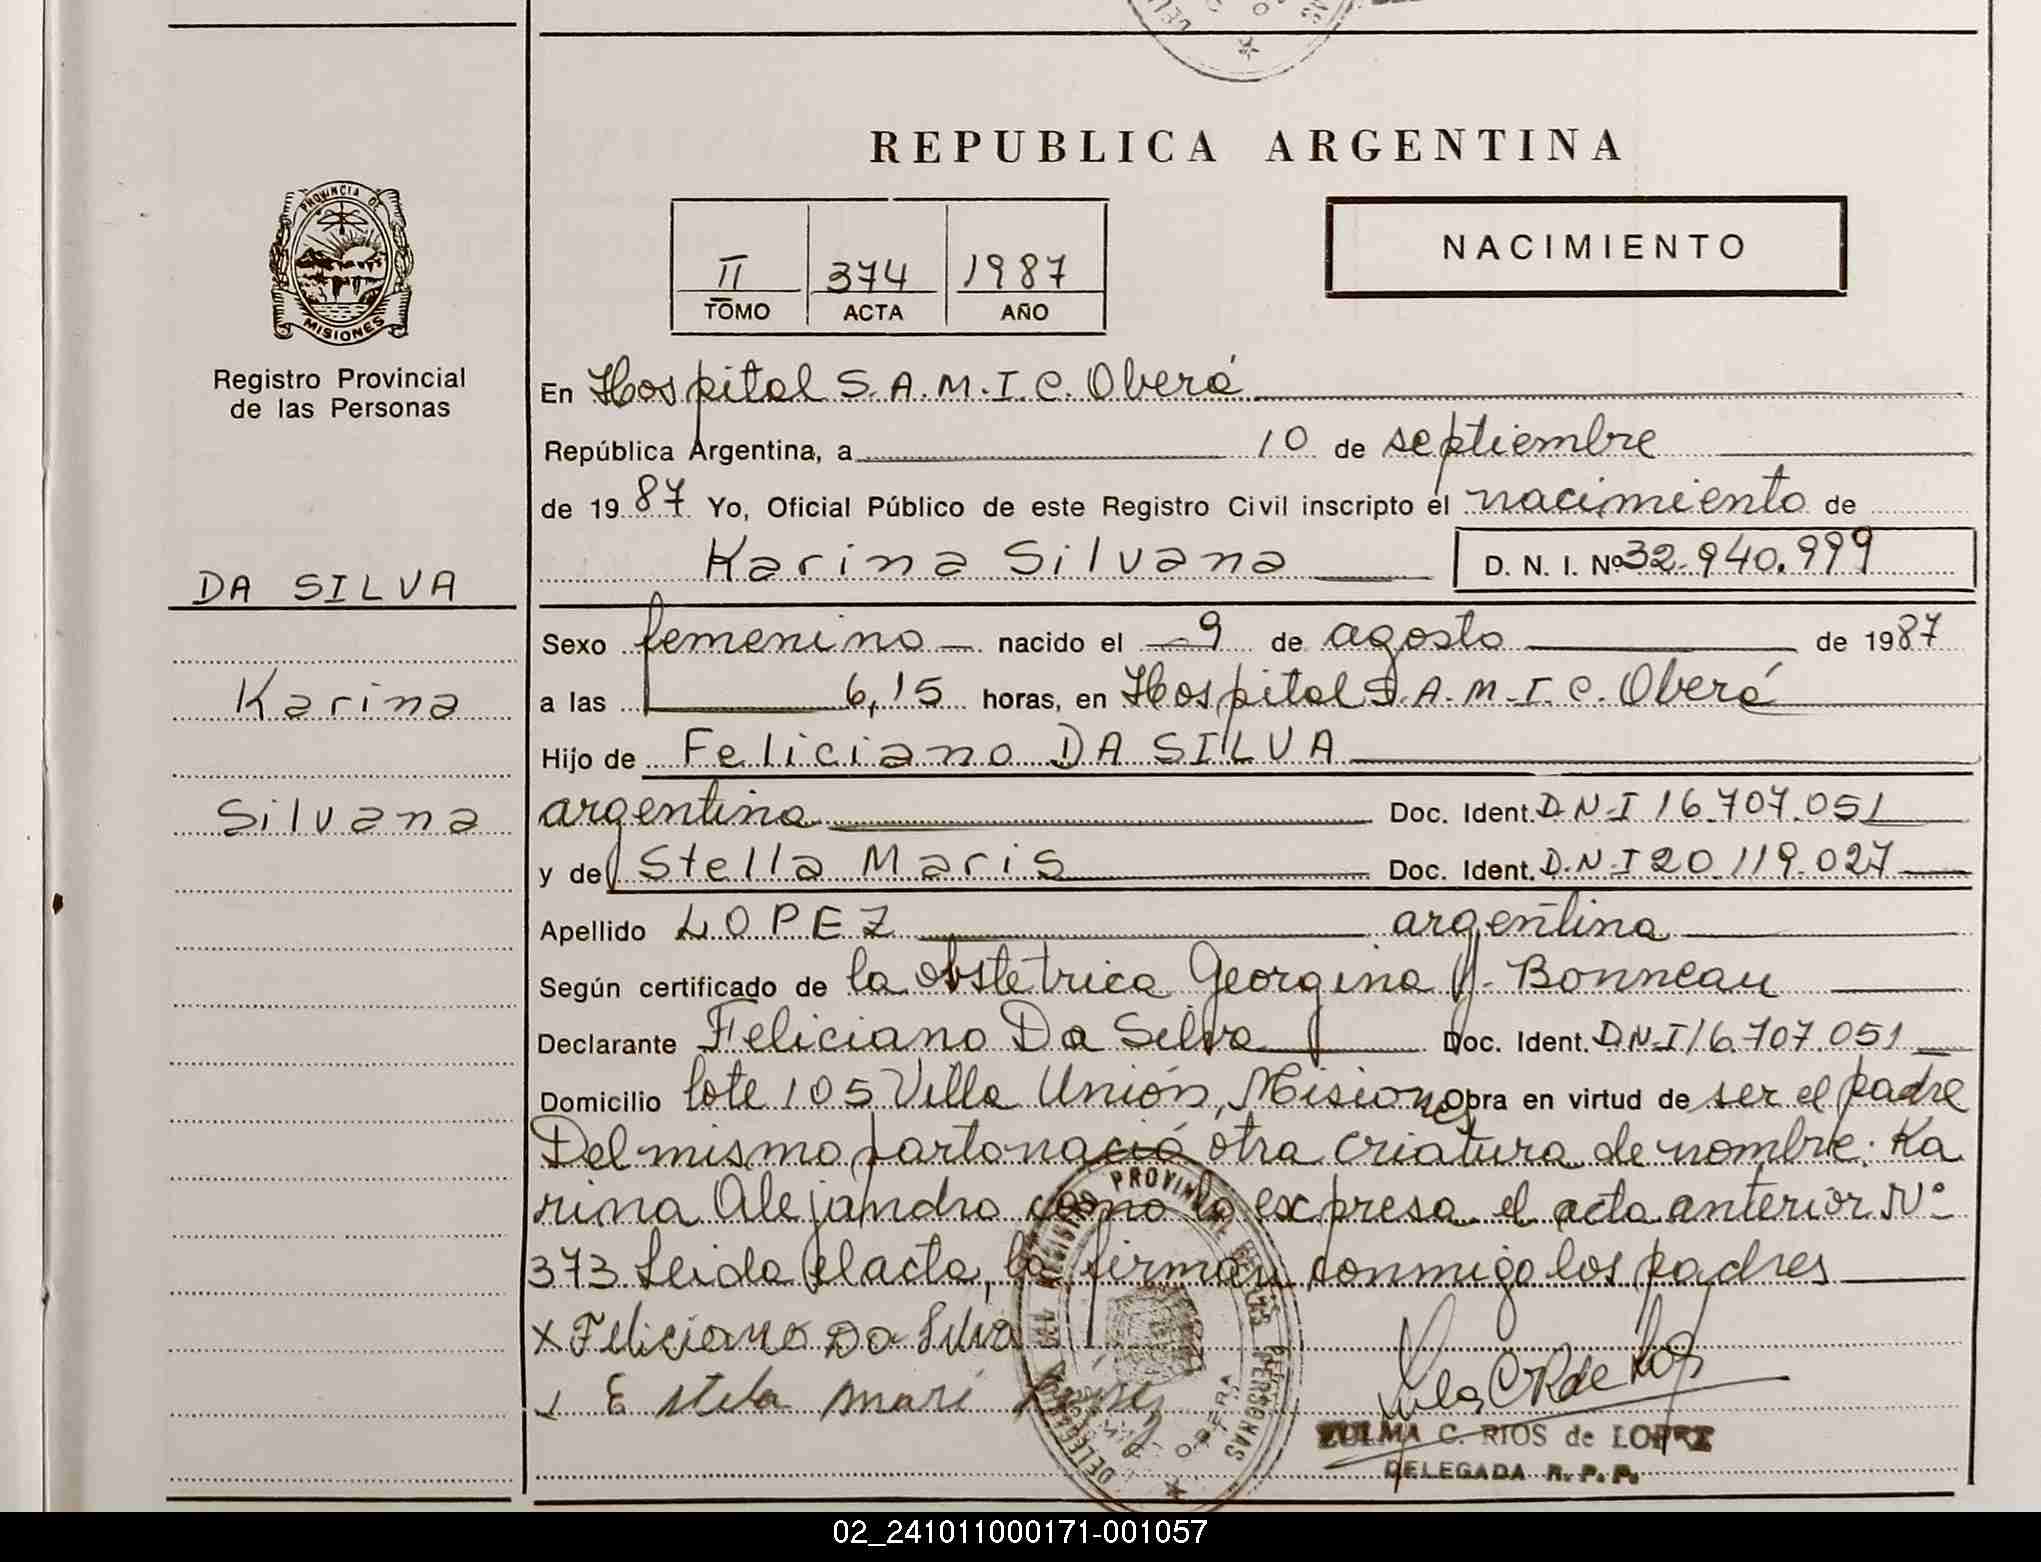 REPUBLICA ARGENTINA
PROVINCIA DE
MISIONES
Registro Provincial
de las Personas
II 374 1987
TOMO ACTA AÑO
NACIMIENTO
En Hospital S.A.M.I.C. Oberá
República Argentina, a 10 de septiembre
de 1987 Yo, Oficial Público de este Registro Civil inscripto el nacimiento de
Karina Silvana D. N. I. Nº 32.940.999
DA SILVA
Karina
Silvana
Sexo femenino nacido el 9 de agosto de 1987
a las 6,15 horas, en Hospital S.A.M.I.C. Oberá
Hijo de Feliciano DA SILVA
argentina Doc. Ident. D.N.I 16.707.051
y de Stella Maris Doc. Ident. D.N.I 20.119.027
Apellido LOPEZ argentina
Según certificado de la obstetrica Georgina Y. Bonneau
Declarante Feliciano Da Silva Doc. Ident. D.N.I 16.707.051
Domicilio lote 105 Villa Unión, Misiones Obra en virtud de ser el padre
Del mismo parto nació otra criatura de nombre: Ka
rina Alejandra como lo expresa el acta anterior Nº
373 Leida el acta, la firman conmigo los padres
x Feliciano Da Silva
Estela mari
ZULMA C. RIOS de LOPEZ
DELEGADA R. P. P.
02_241011000171-001057